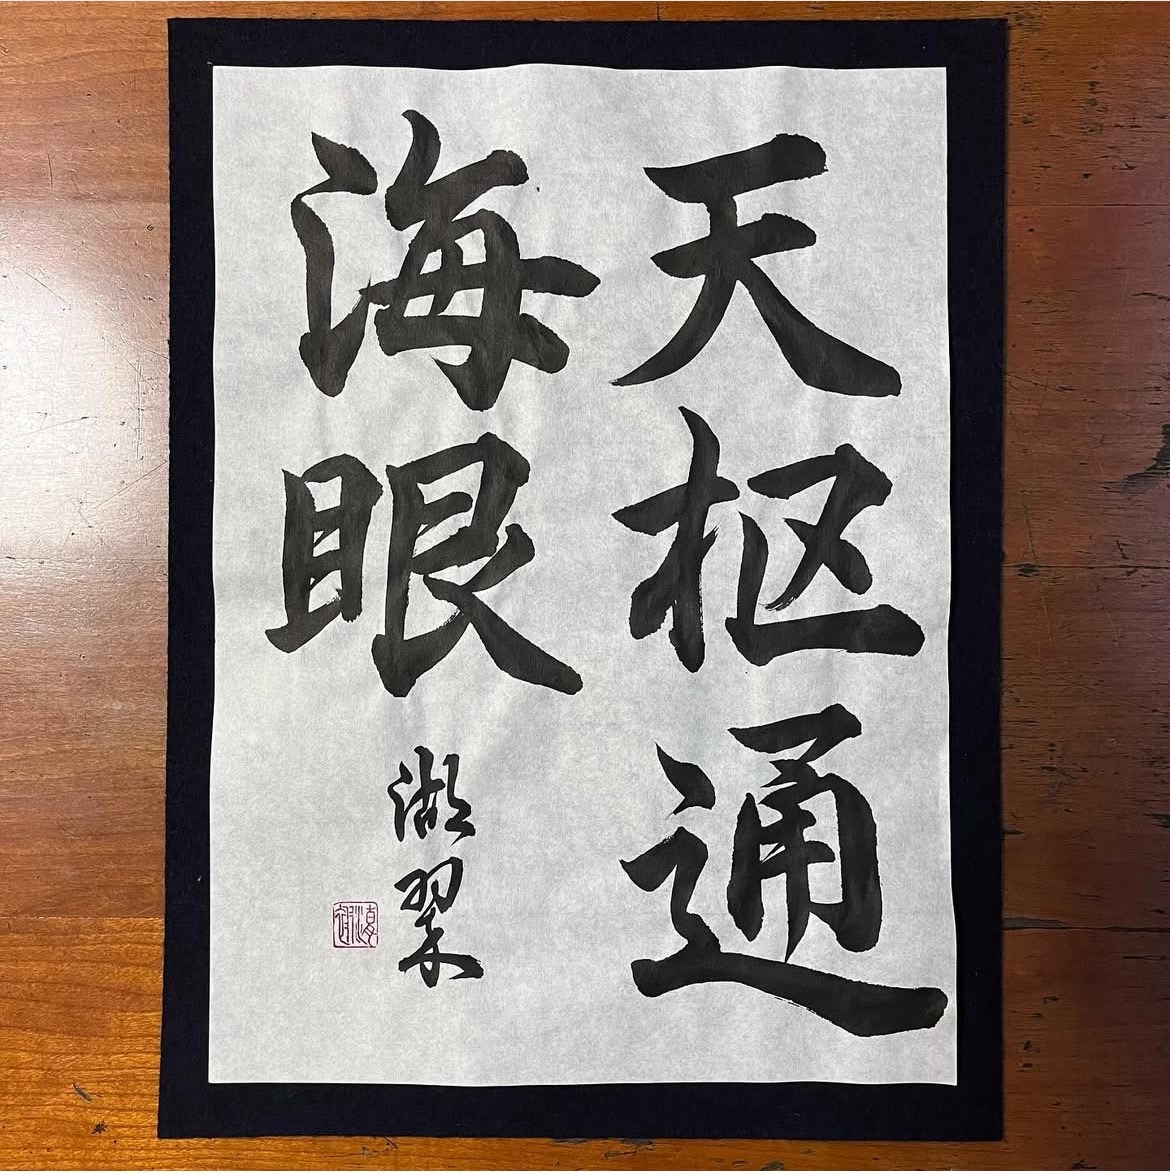 天枢通
海眼
湖翠